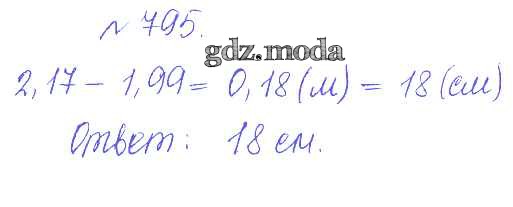 № 795.
gdz.moda
2,17 - 1,99 = 0,18 (м) = 18 (см)
Ответ: 18 см.